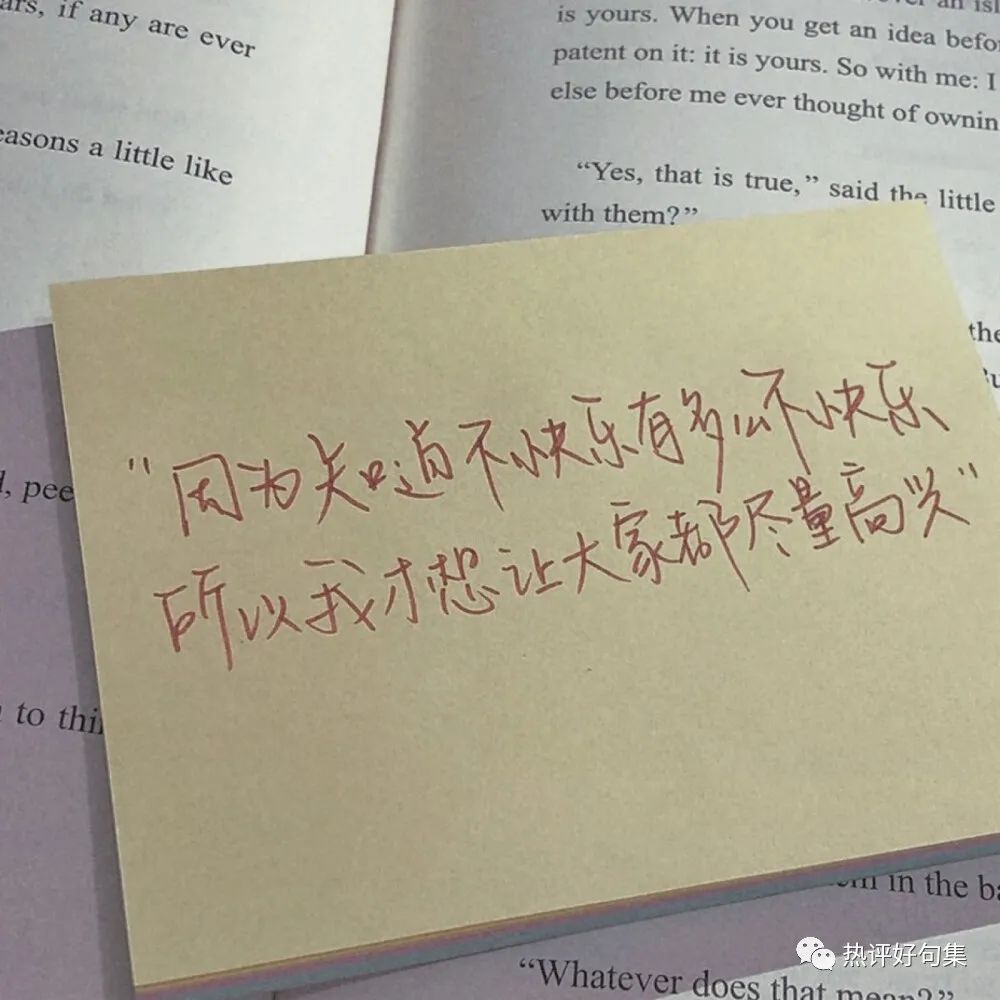 ars, if any are ever
easons a little like
is yours. When you get an idea befo
patent on it: it is yours. So with me: I
else before me ever thought of ownin
“Yes, that is true,” said the little
with them?”
the
“因为知道不快乐有多么不快乐
所以我才想让大家都尽量高兴”
, pee
to thi
in the ba
“Whatever does that mean?”
热评好句集